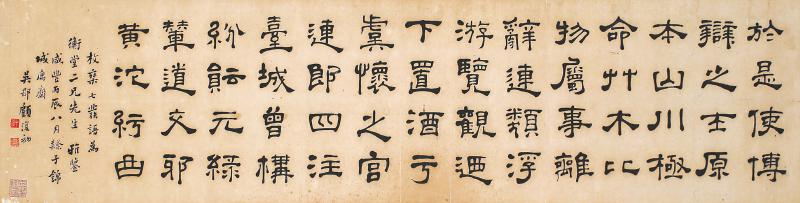 於是使博
辯之士原
本山川極
命艸木比
物屬事離
辭連類浮
游覽觀迺
下置酒亏
虞懷之宮
連郎四注
臺城曾構
紛元綠
輦道交邪
黃沱紆曲
枚乘七發語為
衡堂二兄先生 雅鑒
咸豐丙辰八月錄于錦
城寓廬
吳郡顧復初